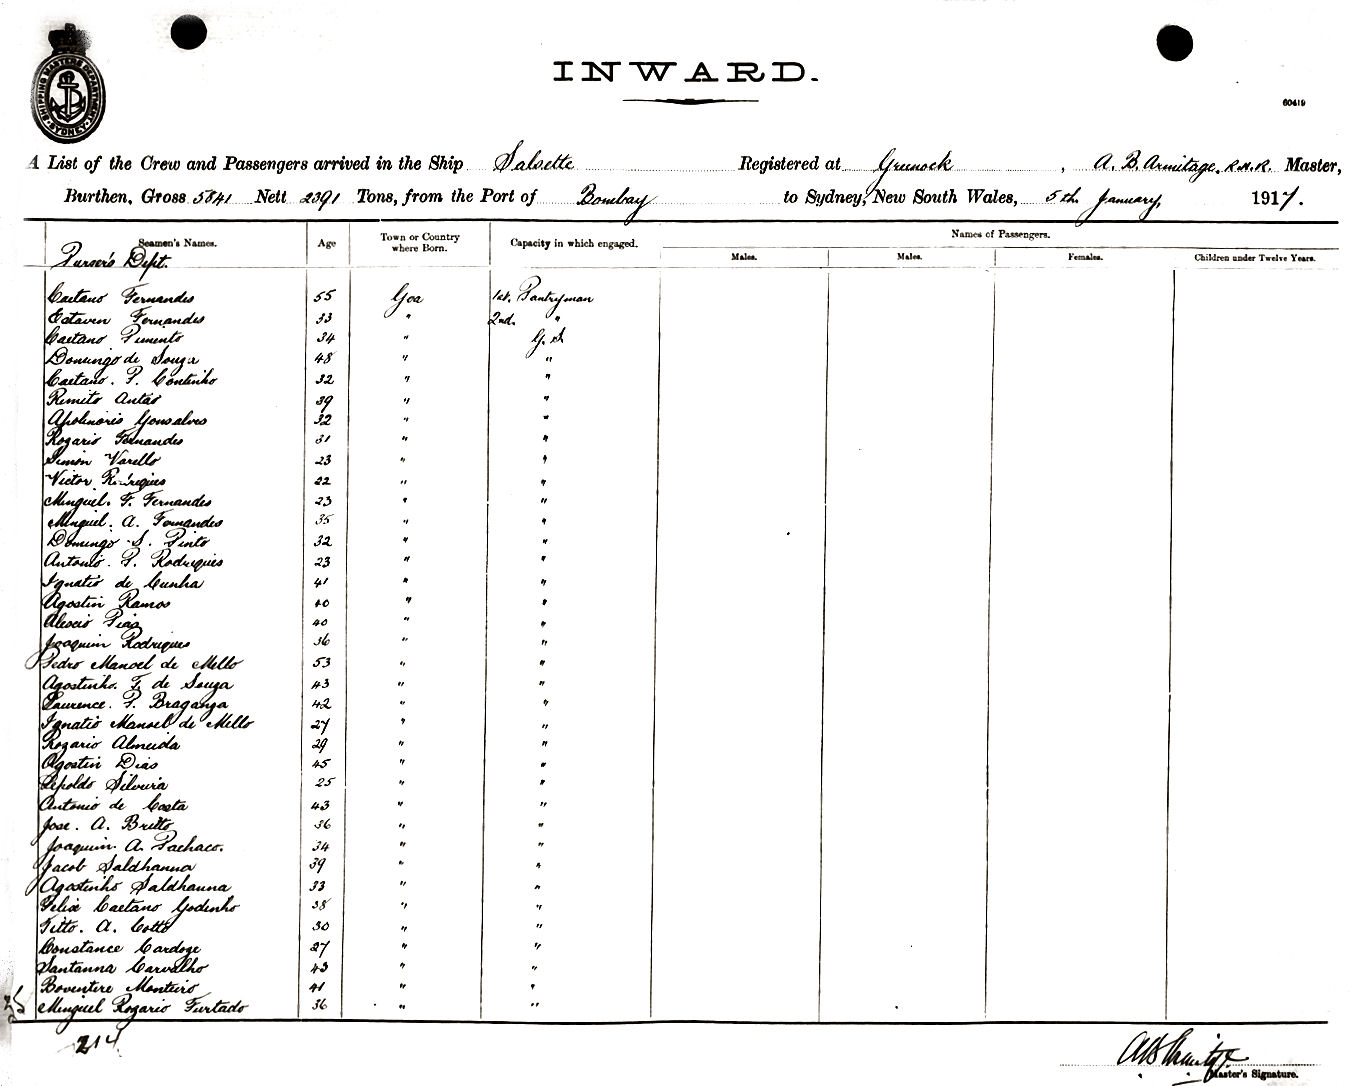 SHIPPING MASTERS DEPARTMENT SYDNEY
INWARD.
60419
A List of the Crew and Passengers arrived in the Ship Salsette Registered at Greenock, A. B. Armitage, R.N.R. Master,
Burthen, Gross 5841 Nett 2391 Tons, from the Port of Bombay to Sydney, New South Wales, 5th January, 1917.
Seamen's Names. Age Town or Country where Born. Capacity in which engaged. Names of Passengers.
Males. Males. Females. Children under Twelve Years.
Purser's Dept.
Caetano Fernandes 55 Goa 1st. Pantryman
Estaven Fernandes 33 " 2nd. "
Caetano Pimento 34 " G. S
Domingo de Souza 48 " "
Caetano. P. Continho 32 " "
Remito Antao 39 " "
Apolinoris Gonsalves 32 " "
Rozario Fernandes 31 " "
Simon Varello 23 " "
Victor Rodrigues 22 " "
Minguel. F. Fernandes 23 " "
Minguel. A. Fernandes 35 " "
Domingo S. Pinto 32 " "
Antonio. P. Rodrigues 23 " "
Ignatio de Cunha 41 " "
Agostin Ramos 40 " "
Alexio Pias 40 " "
Joaquim Rodrigues 36 " "
Pedro Manoel de Mello 53 " "
Agostinho. F. de Souza 43 " "
Laurence. P. Braganza 42 " "
Ignatio Manoel de Mello 27 " "
Rozario Almeida 29 " "
Agostin Dias 45 " "
Lepoldo Silveira 25 " "
Antonio de Costa 43 " "
Jose. A. Britto 36 " "
Joaquim A. Pachaco. 34 " "
Jacob Saldhanna 39 " "
Agostinho Saldhanna 33 " "
Felix Caetano Godinho 38 " "
Titto. A. Cotto 30 " "
Constance Cardoze 27 " "
Santanna Carvalho 43 " "
Boventire Monteiro 41 " "
Minguel Rozario Furtado 36 " "
214
AB Armitage
Master's Signature.